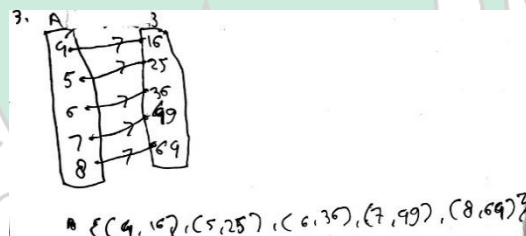 3. A 3
4 16
5 25
6 36
7 49
8 64
{(4, 16), (5, 25), (6, 36), (7, 49), (8, 64)}